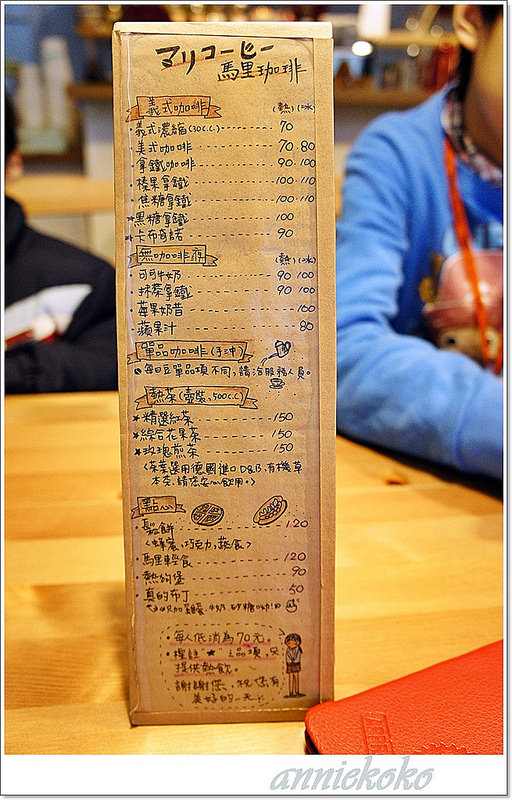 マリコーヒー
馬里珈琲
義式咖啡 (熱) (冰)
・義式濃縮(30c.c.) 70
・美式咖啡 70・80
・拿鐵咖啡 90・100
・榛果拿鐵 100・110
・焦糖拿鐵 100・110
★黑糖拿鐵 100
★卡布奇諾 90
無咖啡因 (熱) (冰)
・可可牛奶 90 100
・抹茶拿鐵 90 100
・莓果奶昔 100
・蘋果汁 80
單品咖啡(手沖)
每日豆單品項不同,請洽服務人員。
熱茶(壺裝, 500c.c.)
★精選紅茶 150
★綜合花果茶 150
★玫瑰煎茶 150
<茶葉選用德國進口D&B.有機草
本茶.請您安心飲用。>
點心
・鬆餅 120
<蜂蜜、巧克力、蔬食>
・馬里輕食 120
・熱狗堡 90
・真的布丁 50
只加雞蛋、牛奶、砂糖
・每人低消為70元。
・標註"★"之品項,只
提供熱飲。
謝謝您,祝您有
美好的一天
anniekoko